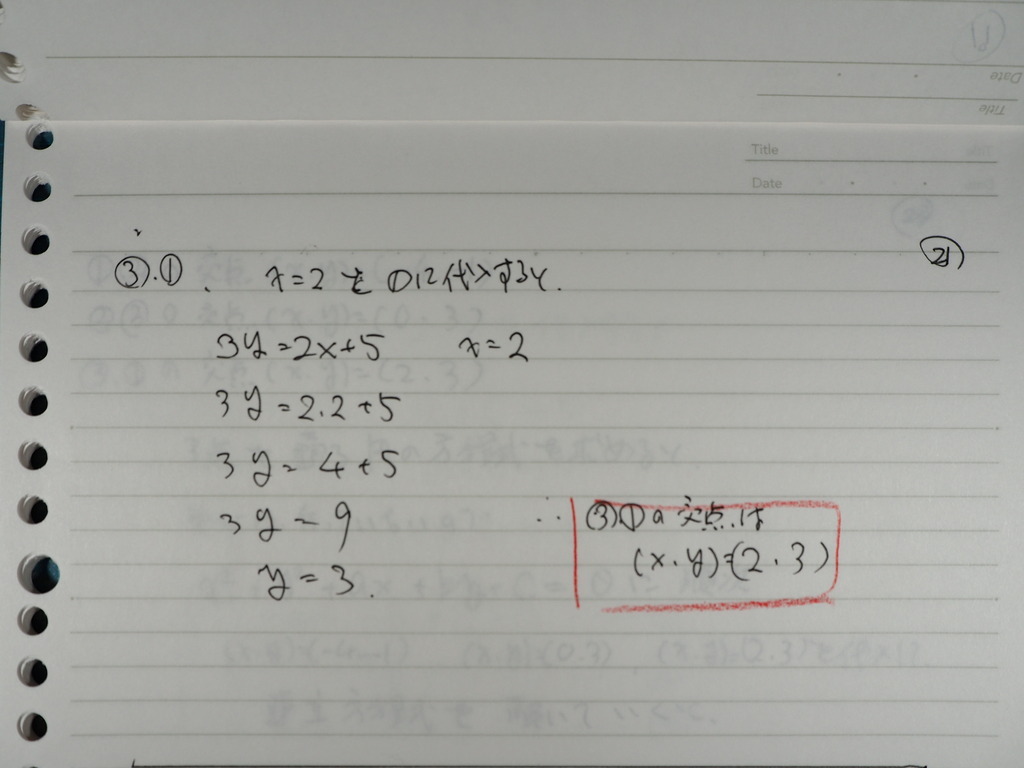 Title
Date
㉑
③.① . x=2を①に代入すると.
3y=2x+5 x=2
3y=2.2+5
3y=4+5
3y=9
y=3.
∴ ③①の交点は
(x.y)=(2.3)